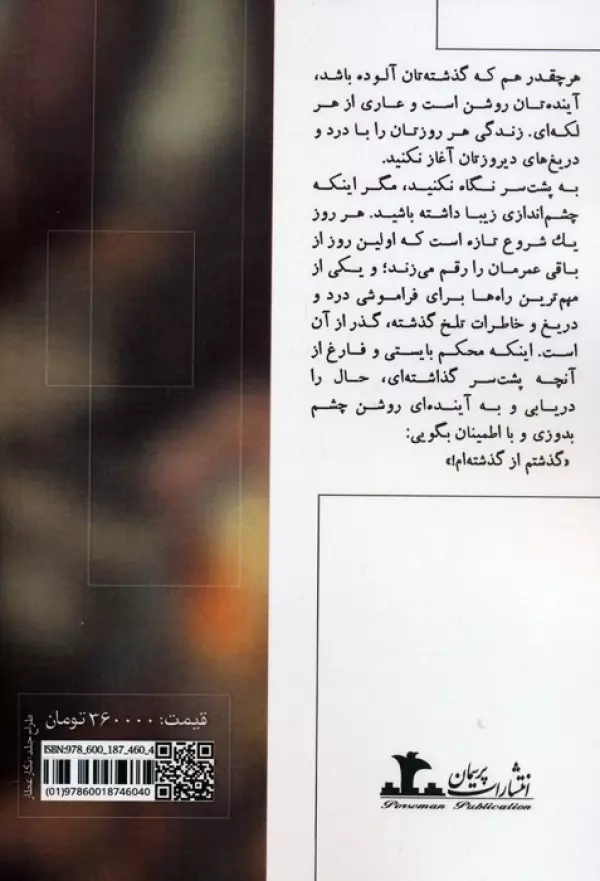 هرچقدر هم که گذشته‌تان آلوده باشد،
آینده‌تان روشن است و عاری از هر
لکه‌ای. زندگی هر روزتان را با درد و
دریغ‌های دیروزتان آغاز نکنید.
به پشت‌سر نگاه نکنید، مگر اینکه
چشم‌اندازی زیبا داشته باشید. هر روز
یك شروع تازه است که اولین روز از
باقی عمرمان را رقم می‌زند؛ و یکی از
مهم‌ترین راه‌ها برای فراموشی درد و
دریغ و خاطرات تلخ گذشته، گذر از آن
است. اینکه محکم بایستی و فارغ از
آنچه پشت‌سر گذاشته‌ای، حال را
دریابی و به آینده‌ای روشن چشم
بدوزی و با اطمینان بگویی:
«گذشتم از گذشته‌ام!»
قیمت: ۳۶۰۰۰۰ تومان
ISBN:978_600_187_460_4
(01)97860018746040
طراح جلد: نگار عطار
انتشارات پریمان
Perseman Publication